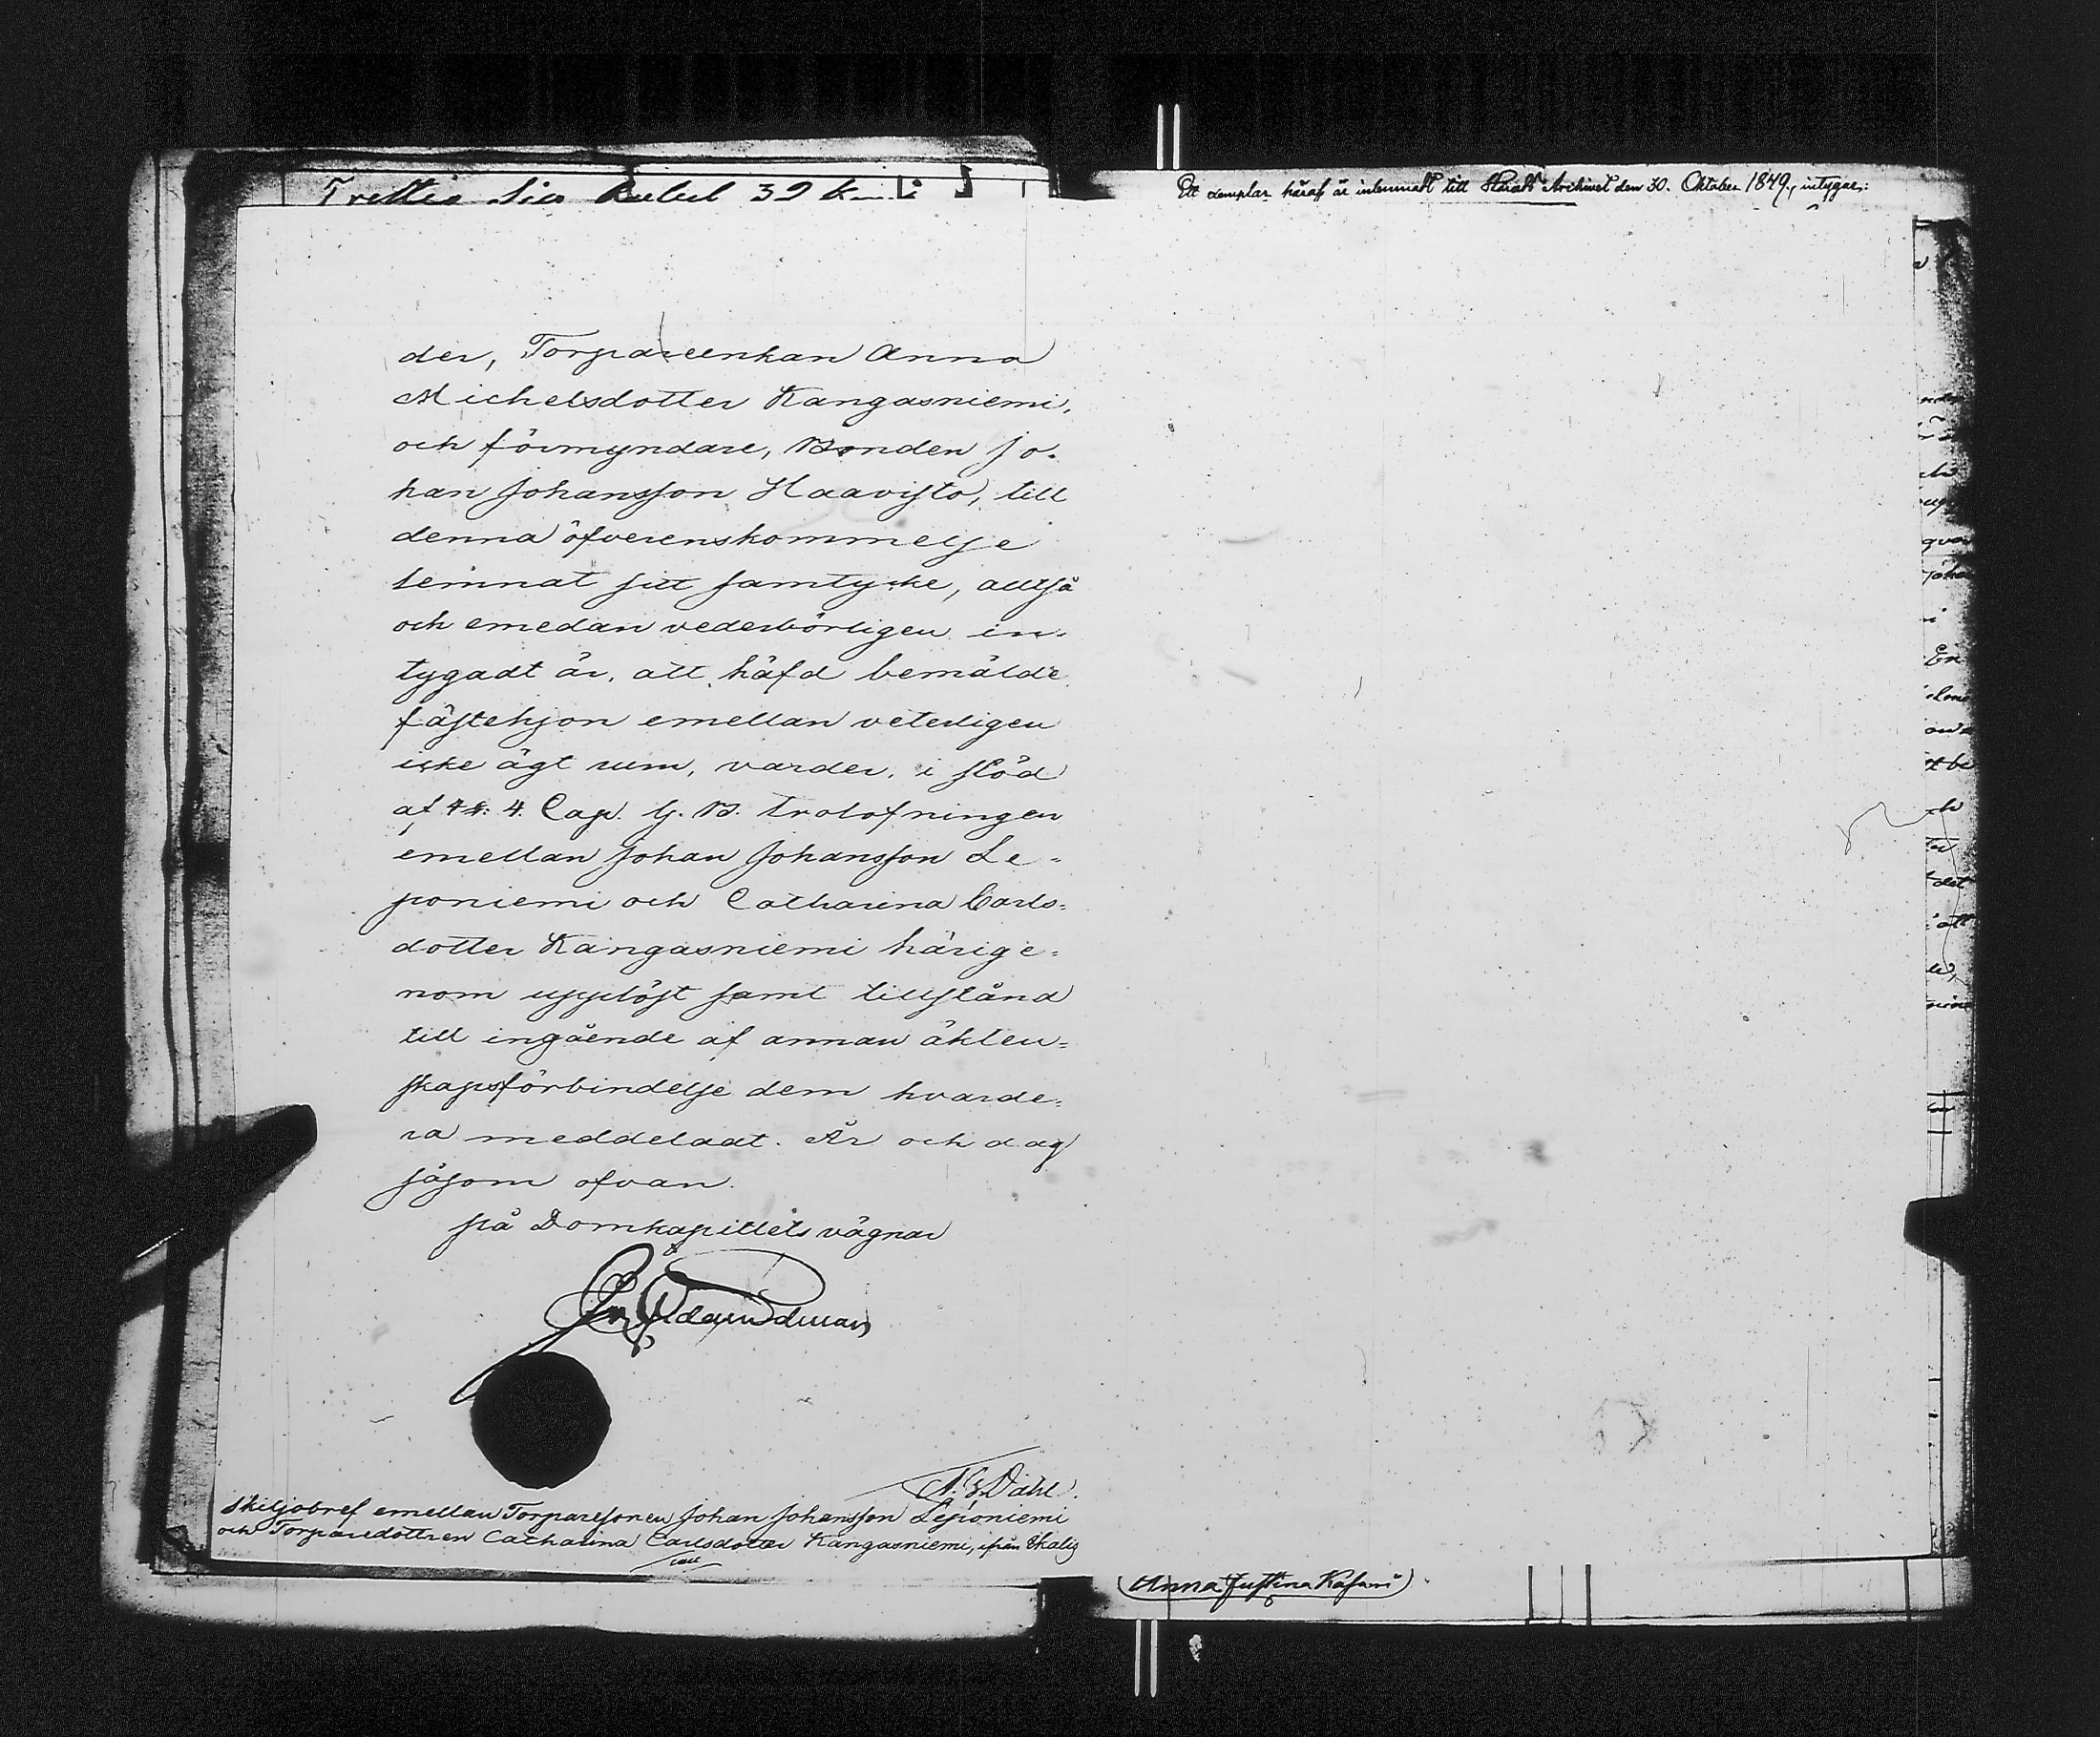 Trettio Sju Rubel 39 k
Ett exemplar häraf är inlemnadt till Härads Archivet den 30. Oktober 1849, intygar:
der, Torpareenkan Anna
Michelsdotter Kangasniemi,
och förmyndare, Bonden Jo-
han Johansson Haavisto, till
denna öfverenskommelse
lemnat sitt samtycke, alltså
och emedan vederbörligen in-
tygadt är, att häfd bemälde
fästehjon emellan veterligen
icke ägt rum, varder, i stöd
af 4 §: 4. Cap. G. B. trolofningen
emellan Johan Johansson Le=
poniemi och Catharina Carls=
dotter Kangasniemi härige=
nom upplöst samt tillstånd
till ingående af annan äkten=
skapsförbindelse dem hvarde=
ra meddeladt. År och dag
såsom ofvan.
på Domkapitlets vägnar
N. G. Dahl.
Skiljobref emellan Torparesonen Johan Johansson Leponiemi
och Torparedottren Catharina Carlsdotter Kangasniemi, ifrån Ikalis
(Anna Justina Kafvari)